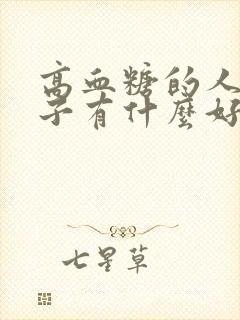 高血糖的人
子有什麼好
七星草